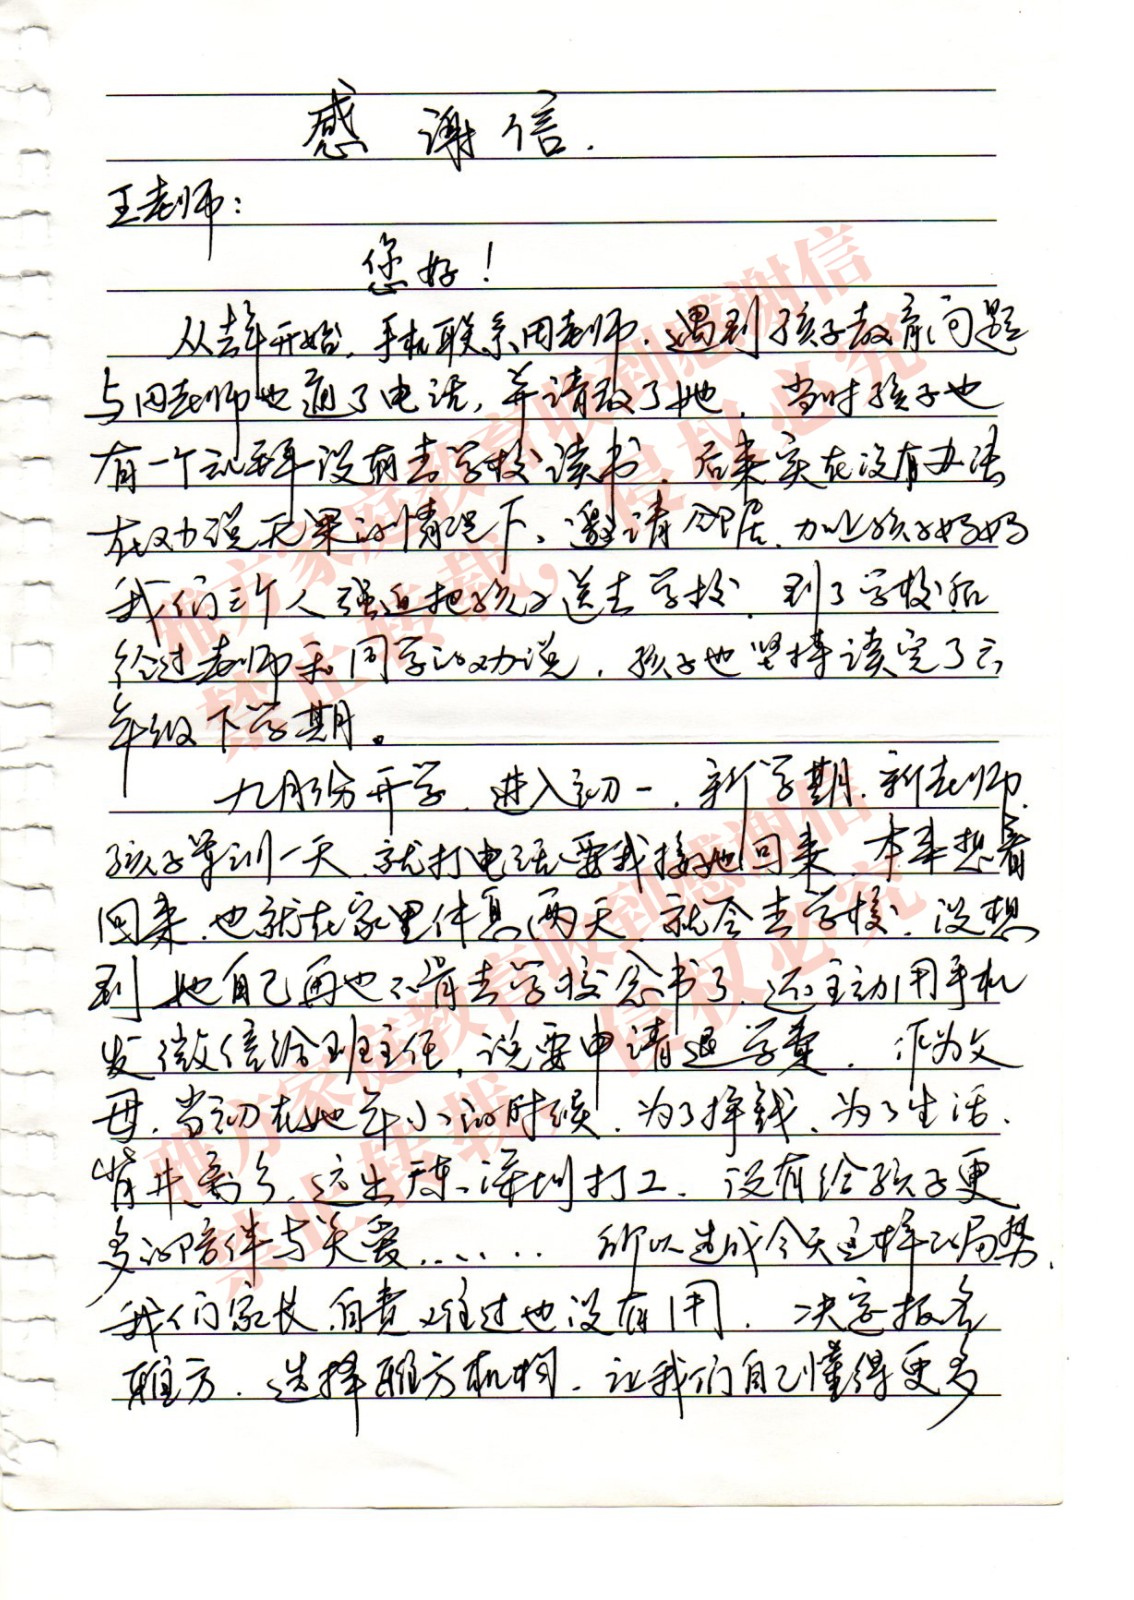 感谢信.
王老师:
您好!
从去年开始,手机联系周老师.遇到孩子教育问题
与周老师也通了电话,并请教了她.当时孩子也
有一个礼拜没有去学校读书.后来实在没有办法
在劝说无果的情况下、邀请邻居.加上孩子妈妈
我们三个人强迫把孩子送去学校.到了学校后
经过老师和同学的劝说,孩子也坚持读完了六
年级下学期。
九月份开学.进入初一.新学期.新老师.
孩子军训一天.就打电话要我接她回来.本来想着
回来.也就在家里休息两天.就会去学校.没想
到她自己再也不肯去学校念书了.还主动用手机
发微信给班主任,说要申请退学费.作为父
母.当初在她年小的时候.为了挣钱、为了生活.
背井离乡.远出广东、深圳打工.没有给孩子更
多的陪伴与关爱......所以造成今天这样的局势.
我们家长.自责难过也没有用.决定报名
雅方.选择雅方机构.让我们自己懂得更多
雅方家庭教育收到感谢信
禁止转载,侵权必究
雅方家庭教育收到感谢信
禁止转载,侵权必究